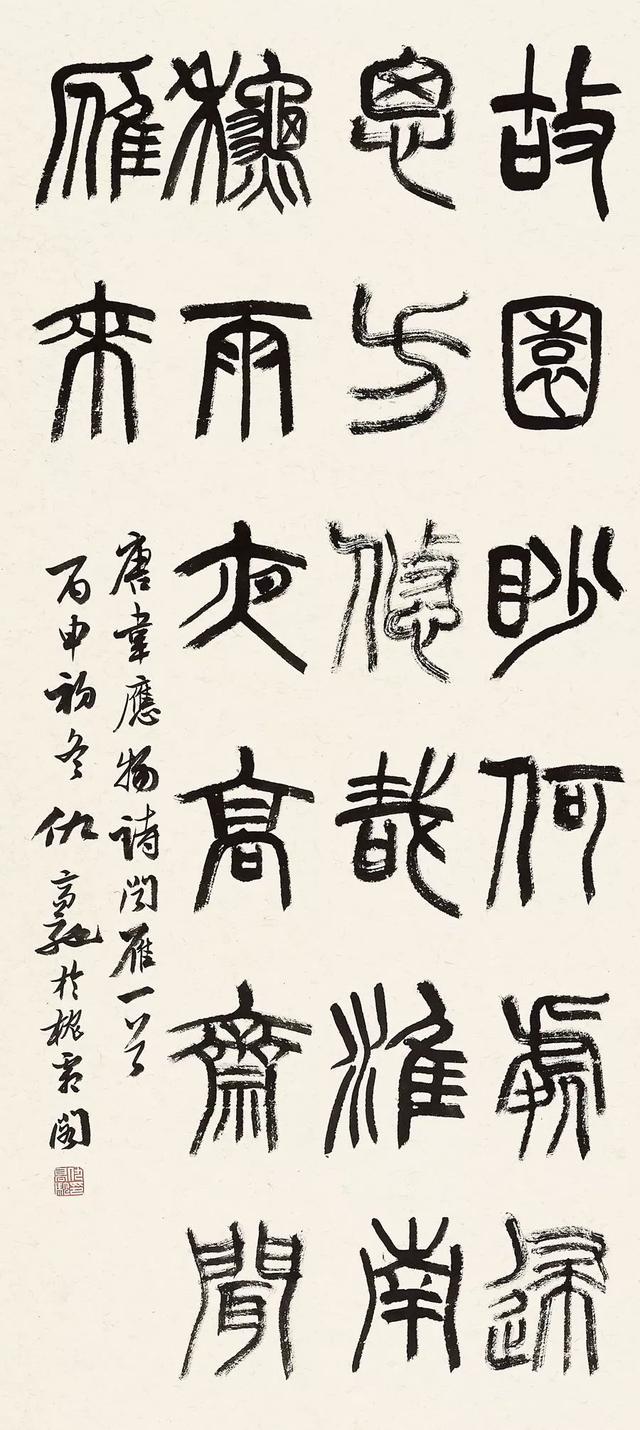 故園眇何處歸
思方悠哉淮南
秋雨夜高齋聞
雁來
唐韋應物詩聞雁一首
丙申初冬仇高馳於閣